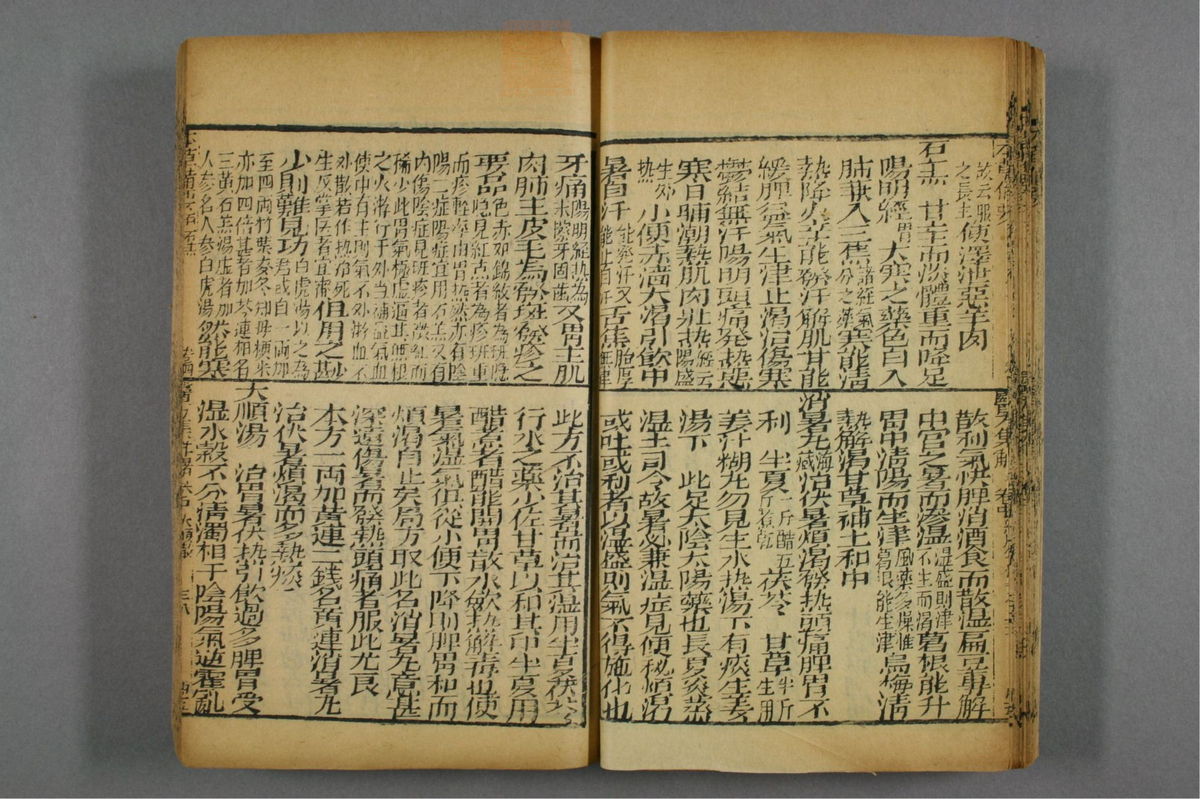 故云
之長生 使澤瀉惡羊肉
石羔 甘辛而淡體重而降足
陽明經胃大寒之藥色白入
肺兼入三焦諸經氣分之藥寒能清
熱降火辛能發汗解肌甘能
緩脾益氣生津止渴治傷寒
欝結無汗陽明頭痛発热悪
寒日晡潮熱肌肉壯热經云陽盛
生外热小便赤濇大渴引飲中
暑自汗能發汗又能止自汗舌焦胎厚無津
牙痛陽明經热為又胃主肌
肉肺主皮毛為發斑發疹之
要品色赤如錦紋者為斑隱
隱見紅点者為疹斑重
而疹輕率由胃热然亦有陰
陽二症陽症宜用石羔又有
內傷陰症見斑疹者微紅而
稀少此胃氣極虛逼其無根
之火遊行于外当補益氣血
使中有主則氣不外遊血不
外散若作热治死
生反掌医者宜審但用之尠
少則難見功白虎湯以之為
君或自一兩加
至四兩竹葉麥冬知母粳米
亦加四倍甚者加芩連相名
三黃石羔湯虛者加
人參名人参白虎湯然能寒
散利氣快脾消酒食而散濕扁豆專解
中宮之暑而滲濕濕盛則津不生而渴葛根能升
胃中清陽而生津風藥多燥惟葛根能生津烏梅清
熱解渴甘草補土和中
消暑丸海藏治伏暑煩渴發热頭痛脾胃不
利 半夏一斤醋五斤煮乾茯苓 甘草半斤生用
姜汁糊丸勿見生水热湯下有痰生姜
湯下 此足太陰太陽藥也長夏炎蒸
濕土司令故暑必兼濕症見便秘煩渴
或吐或利者以濕盛則氣不得施化也
此方不治其暑而治其濕用半夏茯苓
行水之藥小佐甘草以和其中半夏用
醋煮者醋能開胃散水歛热解毒也使
暑氣湿氣俱從小便下降則脾胃和而
煩渴自止矣局方取此名消暑丸意甚
深遠傷暑而發熱頭痛者服此尤良
本方一兩加黃連二錢名黃連消暑丸
治伏暑煩渴而多熱痰
大順湯 治冒暑伏热引飲過多脾胃受
湿水穀不分清濁相干陰陽氣逆霍亂